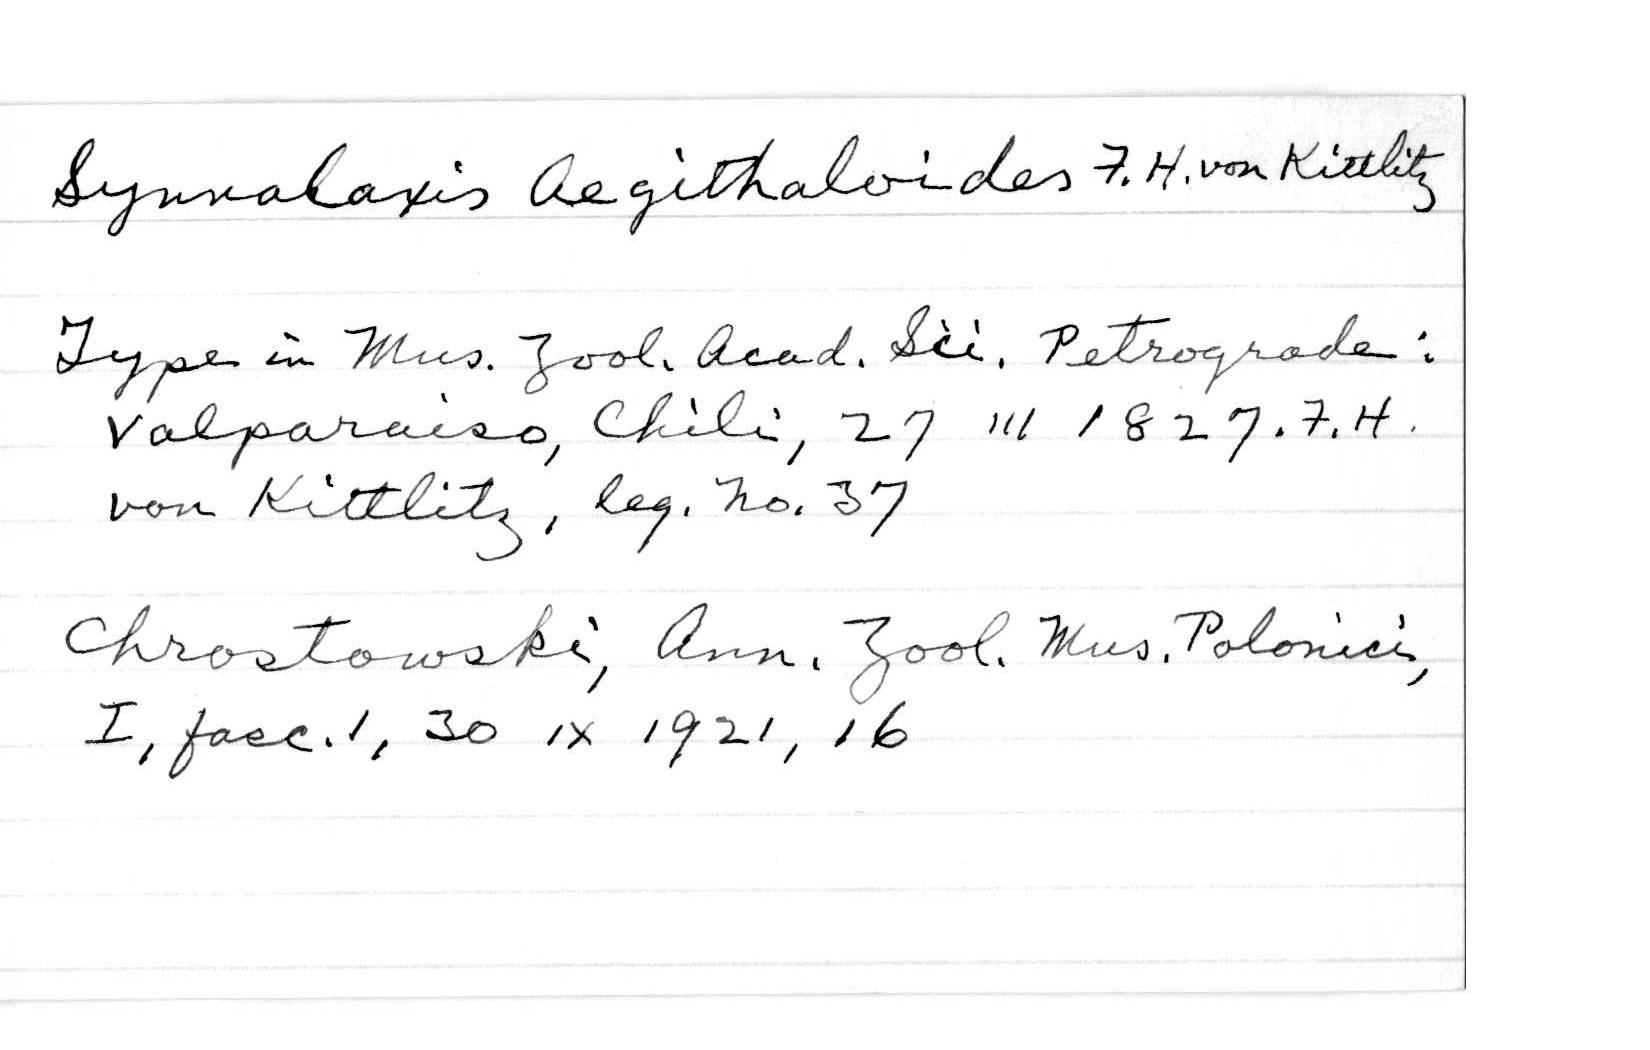 Synnalaxis Aegithaloides F. H. von Kittlitz
Type in Mus. Zool. Acad. Sci. Petrograde:
Valparaiso, Chili, 27 III 1827. F. H.
von Kittlitz, leg. No. 37
Chrostowski, Ann. Zool. Mus. Polonici,
I, fasc. 1, 30 IX 1921, 16